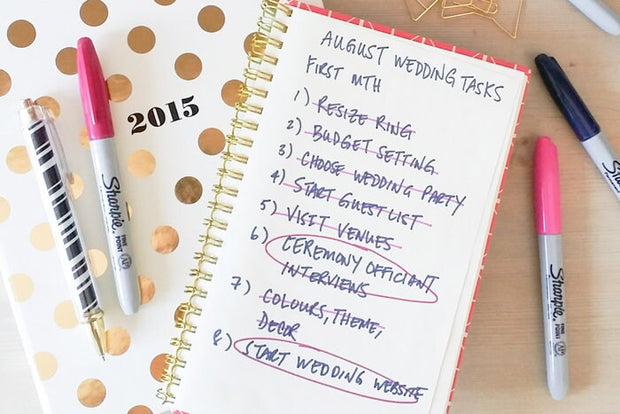 2015
Sharpie.
FINE POINT
AUGUST WEDDING TASKS
FIRST MTH
1) RESIZE RING
2) BUDGET SETTING
3) CHOOSE WEDDING PARTY
4) START GUEST LIST
5) VISIT VENUES
6) CEREMONY OFFICIANT
INTERVIEWS
7) COLOURS, THEME,
DECOR
8) START WEDDING WEBSITE
Sharpie.
FINE POINT